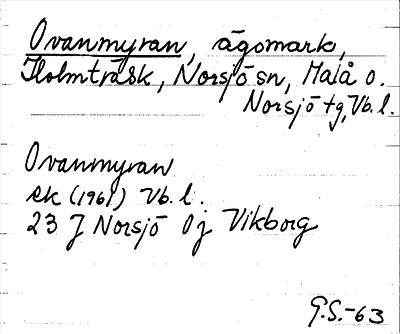 Ovanmyran, ägomark,
Holmträsk, Norsjö sn, Malå o.
Norsjö tg, Vb. l.
Ovanmyran
ek (1961) Vb. l.
23 J Norsjö 0j Vikborg
G.S.-63